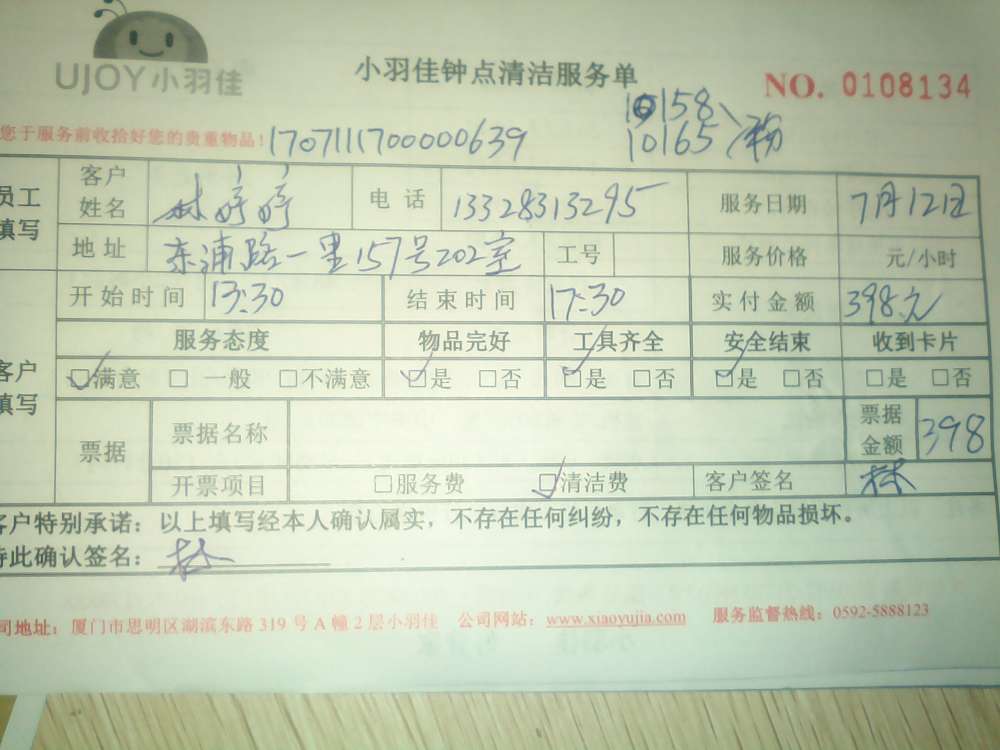 UJOY小羽佳
小羽佳钟点清洁服务单
NO. 0108134
您于服务前收拾好您的贵重物品!
1707111700000639
10158
10165
员工填写
客户姓名 林婷婷 电话 13328313295 服务日期 7月12日
地址 东浦路一里157号202室 工号 服务价格 元/小时
开始时间 13:30 结束时间 17:30 实付金额 398元
客户填写
服务态度 物品完好 工具齐全 安全结束 收到卡片
☑满意 □一般 □不满意 ☑是 □否 ☑是 □否 ☑是 □否 □是 □否
票据 票据名称 票据金额 398
开票项目 □服务费 ☑清洁费 客户签名 林
客户特别承诺：以上填写经本人确认属实，不存在任何纠纷，不存在任何物品损坏。
特此确认签名：林
司地址：厦门市思明区湖滨东路 319 号 A 幢 2 层小羽佳 公司网站：www.xiaoyujia.com 服务监督热线：0592-5888123